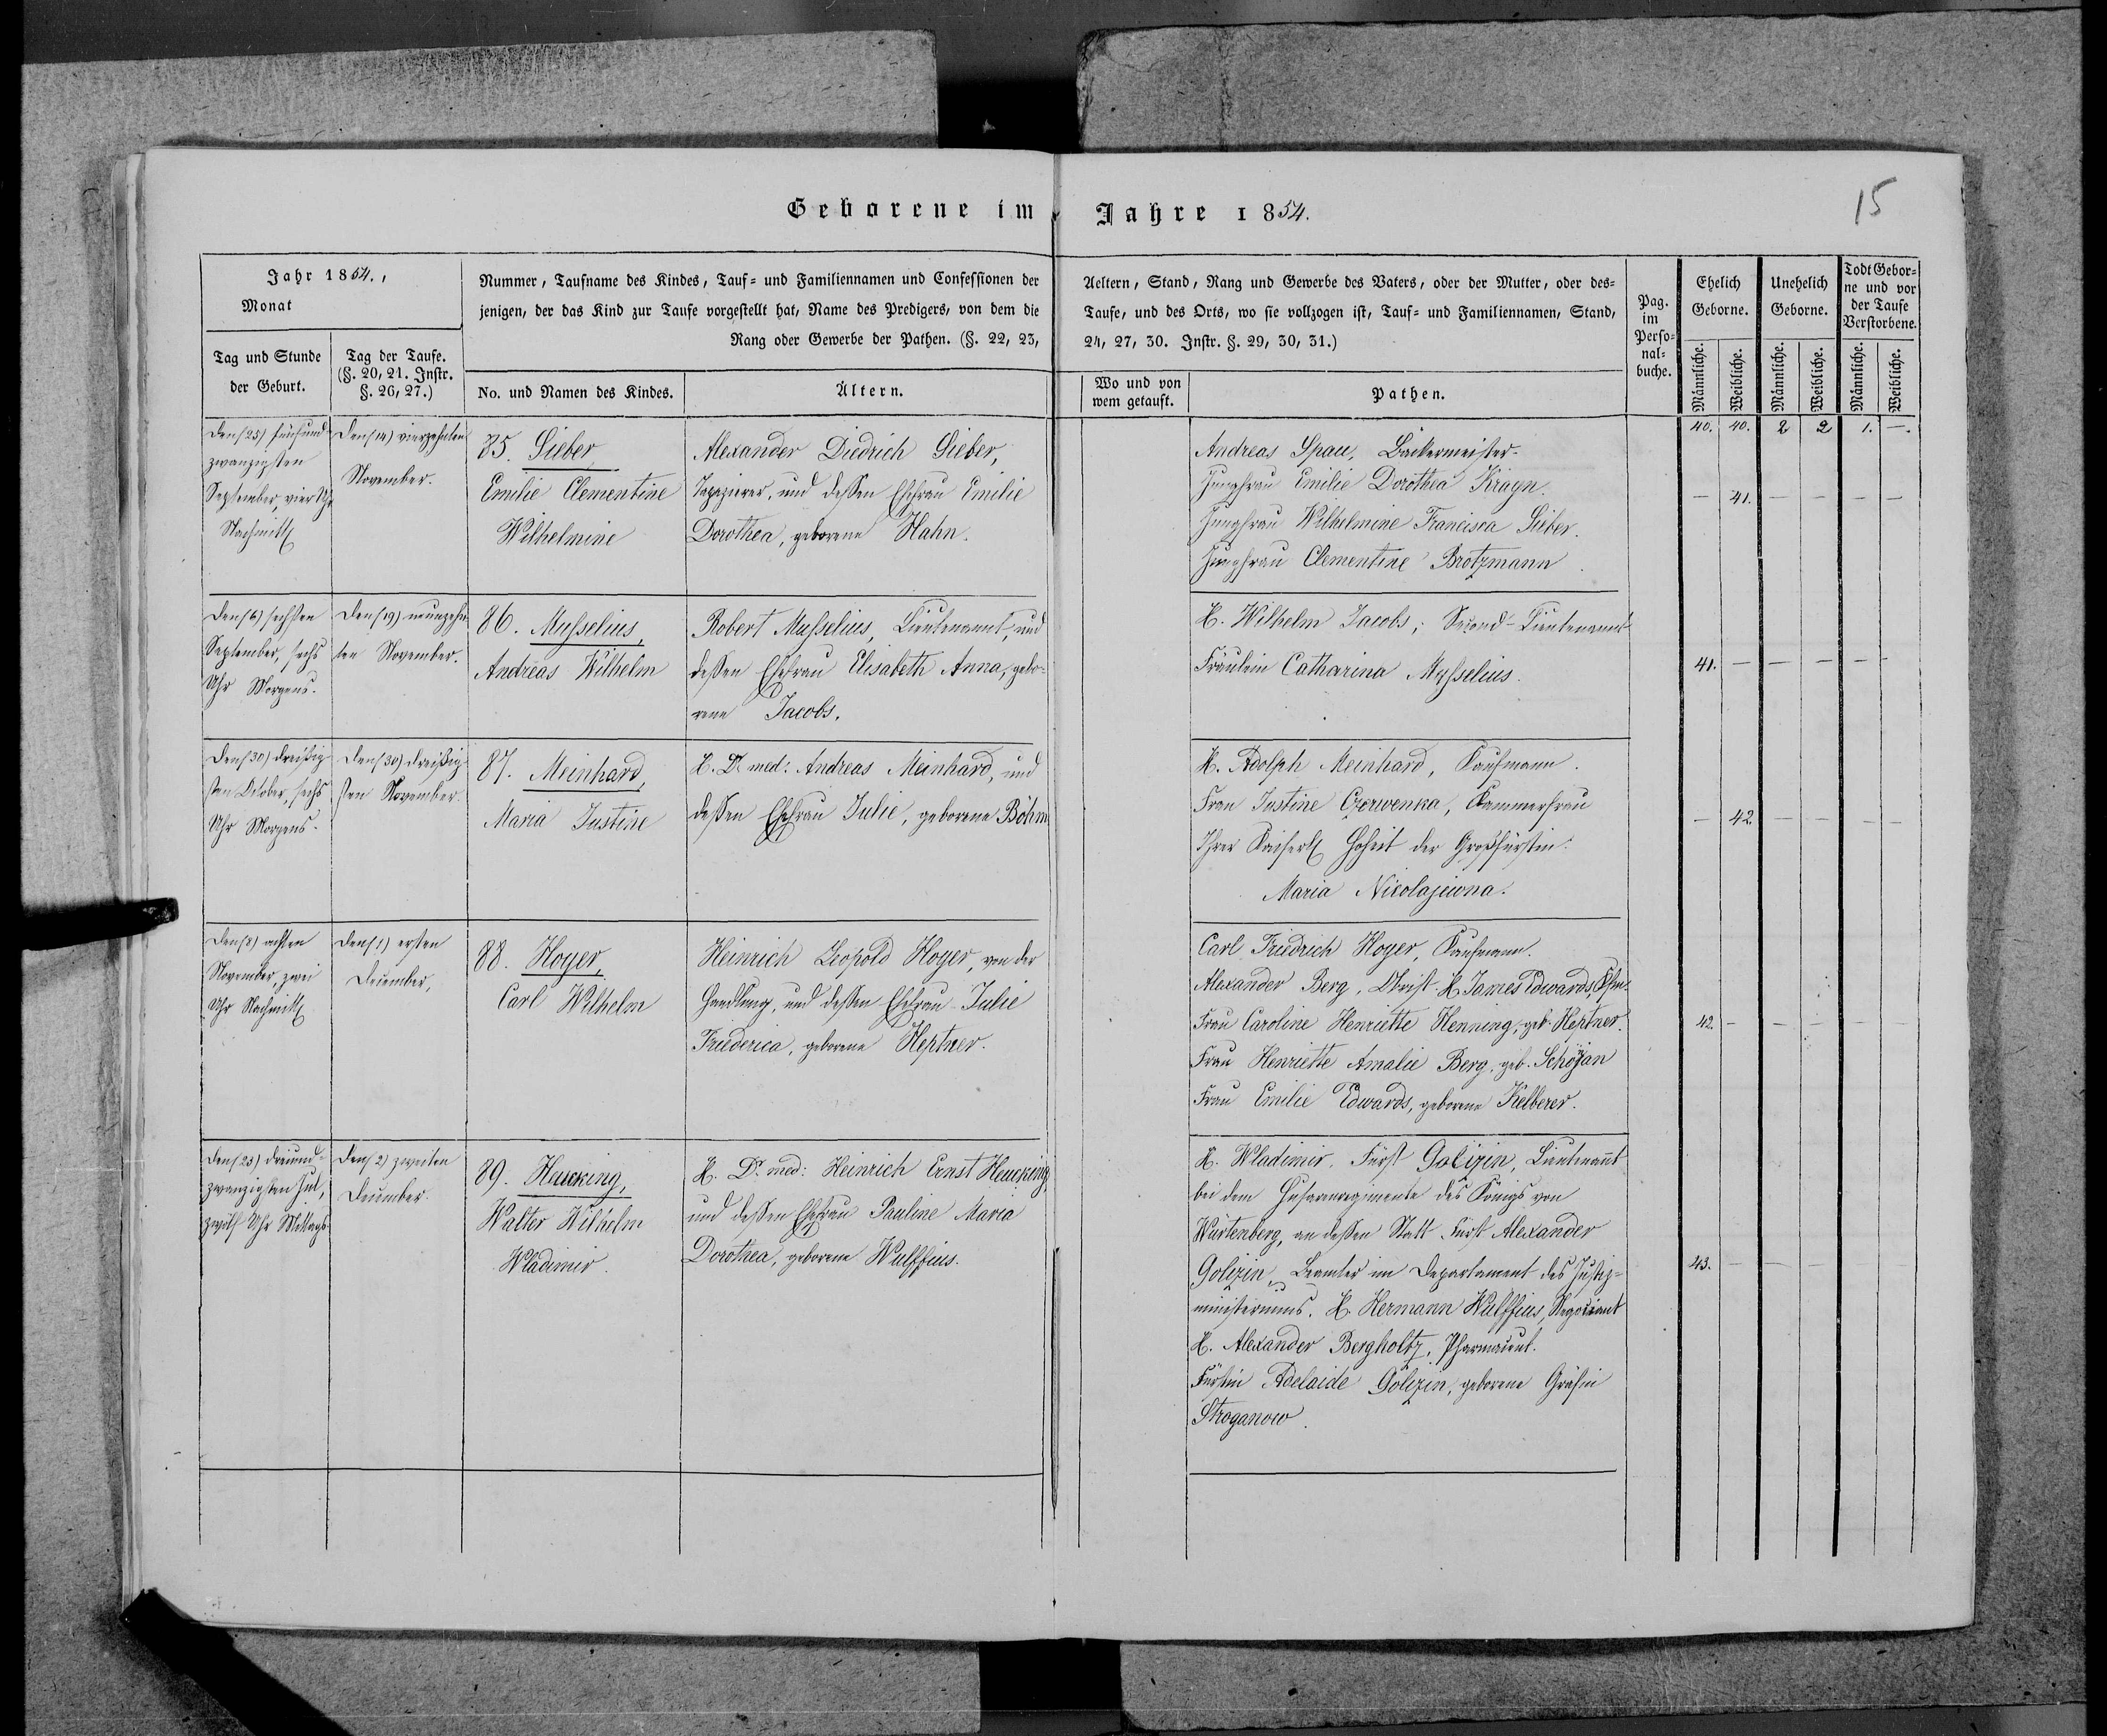 15
Geborene im Jahre 1854.
Jahr 1854.,
Monat
Tag und Stunde
der Geburt.
Tag der Taufe.
(§. 20, 21. Instr.
§. 26, 27.)
Nummer, Taufname des Kindes, Tauf- und Familiennamen und Confessionen der
jenigen, der das Kind zur Taufe vorgestellt hat, Name des Predigers, von dem die
Rang oder Gewerbe der Pathen. (§. 22, 23,
No. und Namen des Kindes.
Ältern.
Aeltern, Stand, Rang und Gewerbe des Vaters, oder der Mutter, oder des-
Taufe, und des Orts, wo sie vollzogen ist, Tauf- und Familiennamen, Stand,
24, 27, 30. Instr. §. 29, 30, 31.)
Wo und von
wem getauft.
Pathen.
Pag.
im
Perso-
nal-
buche.
Ehelich
Geborne.
Unehelich
Geborne.
Todt Gebor-
ne und vor
der Taufe
Verstorbene.
Männliche.
Weibliche.
Männliche.
Weibliche.
Männliche.
Weibliche.
40. 40. 2 2 1. —.
Den (25) fünfund-
zwanzigsten
September, vier Uhr
Nachmitt
Den (14) vierzehnten
November.
85. Sieber,
Emilie Clementine
Wilhelmine
Alexander Diedrich Sieber,
Tapezierer, und dessen Ehefrau Emilie
Dorothea, geborene Hahn.
Andreas Spau, Bäckermeister.
Jungfrau Emilie Dorothea Krayn.
Jungfrau Wilhelmine Francisca Sieber.
Jungfrau Clementine Brotzmann
— 41. — — — —
Den (6) sechsten
September, sechs
Uhr Morgens.
Den (19) neunzehn
ten November.
86. Musselius,
Andreas Wilhelm
Robert Musselius, Lieutenannt, und
dessen Ehefrau Elisabeth Anna, gebo-
rene Jacobs.
H. Wilhelm Jacobs, Second-Lieutenannt
Fräulein Catharina Musselius.
41. — — — — —
Den (30) dreißig-
sten October, sechs
Uhr Morgens.
Den (30) dreißig-
sten November.
87. Meinhard,
Maria Justine
H. Dr med: Andreas Meinhard, und
dessen Ehefrau Julie, geborene Böhm
H. Adolph Meinhard, Kaufmann.
Frau Justine Czerwenka, Kammerfrau
Ihrer Kaiserl Hoheit der Großfürstin
Maria Nicolajewna.
— 42. — — — —
Den (8) achten
November, zwei
Uhr Nachmitt
Den (1) ersten
December,
88. Hoyer,
Carl Wilhelm
Heinrich Leopold Hoyer, von der
Handlung, und dessen Ehefrau Julie
Friederica, geborene Heptner.
Carl Friedrich Hoyer, Kaufmann.
Alexander Berg, Obrist. H. James Edwards, Kfm.
Frau Caroline Henriette Henning, geb. Heptner.
Frau Henriette Amalie Berg, geb.
Frau Emilie Edwards, geborene Kelberer.
42. — — — —
Den (23) dreiund-
zwanzigsten Jul,
zwölf Uhr Mittags
Den (2) zweiten
December.
89. Heucking,
Walter Wilhelm
Wladimir.
H. Dr med: Heinrich Ernst Heucking,
und dessen Ehefrau Pauline Maria
Dorothea, geborene Wulffius.
H. Wladimir, Fürst Golizin, Lieutenannt
bei dem Husarenregimente des Königs von
Würtenberg, an dessen Statt Fürst Alexander
Golizin, Beamter im Departament des Justiz-
ministeriums. H. Hermann Wulffius, Negociant
H. Alexander Bergholtz, Pharmaceut.
Fürstin Adelaide Golizin, geborene Gräfin
Stroganow.
43. — — — — —